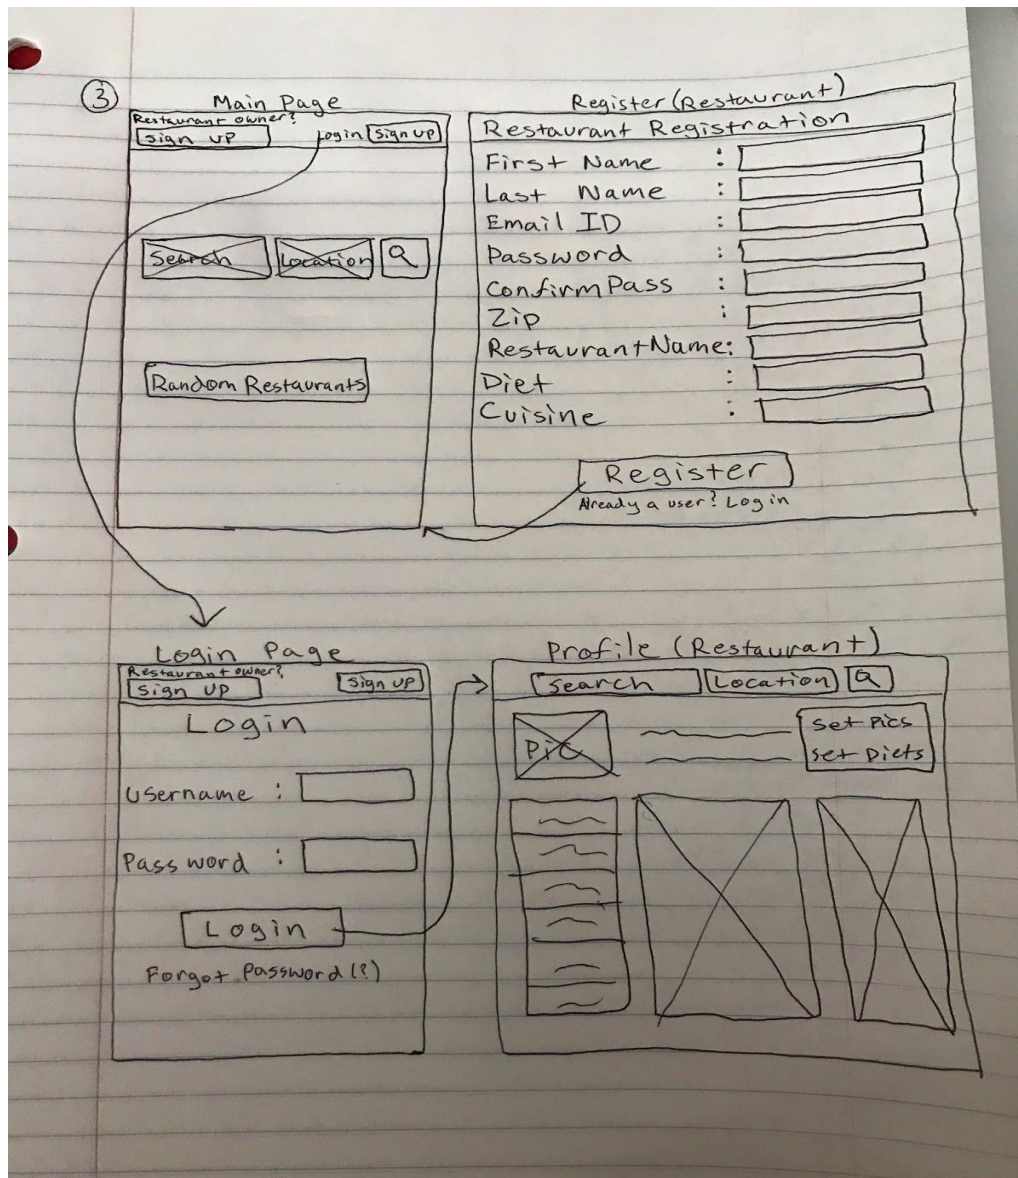 ③
Main Page
Restaurant owner?
Sign UP
Login
Sign UP
Search
Location
Random Restaurants
Register (Restaurant)
Restaurant Registration
First Name :
Last Name :
Email ID :
Password :
Confirm Pass :
Zip :
Restaurant Name:
Diet :
Cuisine :
Register
Already a user? Login
Login Page
Restaurant owner?
Sign UP
Sign UP
Login
Username :
Password :
Login
Forgot Password (?)
Profile (Restaurant)
Search
Location
Pic
Set Pics
Set Diets